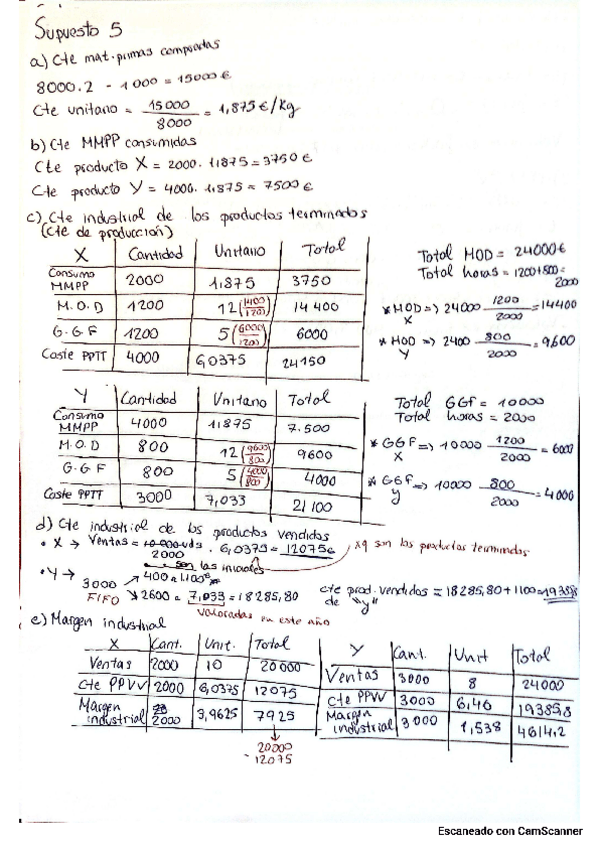 Supuesto 5
a) Cte mat. primas compradas
8000.2 - 1000 = 15000 €
Cte unitario = 15000 / 8000 = 1,875 €/Kg
b) Cte MMPP consumidas
Cte producto X = 2000. 1,875 = 3750 €
Cte producto Y = 4000. 1,875 = 7500 €
c) Cte industrial de los productos terminados
(cte de producción)
X Cantidad Unitario Total
Consumo MMPP 2000 1,875 3750
M.O.D 1200 12 (14400/1200) 14 400
G.G.F 1200 5 (6000/1200) 6000
Coste PPTT 4000 6,0375 24150
Total MOD = 24000€
Total horas = 1200+800= 2000
* MOD X => 24000 1200/2000 = 14400
* MOD Y => 2400 800/2000 = 9600
Y Cantidad Unitario Total
Consumo MMPP 4000 1,875 7.500
M.O.D 800 12 (9600/800) 9600
G.G.F 800 5 (4000/800) 4000
Coste PPTT 3000 7,033 21100
Total GGf = 10000
Total horas = 2000
* GGF X => 10000 1200/2000 = 6000
* GGf Y => 10000 800/2000 = 4000
d) Cte industrial de los productos vendidos
• X → Ventas = 2000 . 6,0375 = 12075€
xq son los productos terminados
son las iniciales
• Y → 3000 → 400 = 1100€
FIFO ↘ 2600 = 7,033 = 18285,80
valoradas en este año
cte prod. vendidos de "y" = 18285,80 + 1100 = 19385,8
e) Margen industrial
X Cant. Unit. Total
Ventas 2000 10 20000
Cte PPVV 2000 6,0375 12075
Margen industrial 2000 3,9625 7925
20000
- 12075
Y Cant. Unit Total
Ventas 3000 8 24000
Cte PPVV 3000 6,46 19385,8
Margen industrial 3000 1,538 4614,2
Escaneado con CamScanner